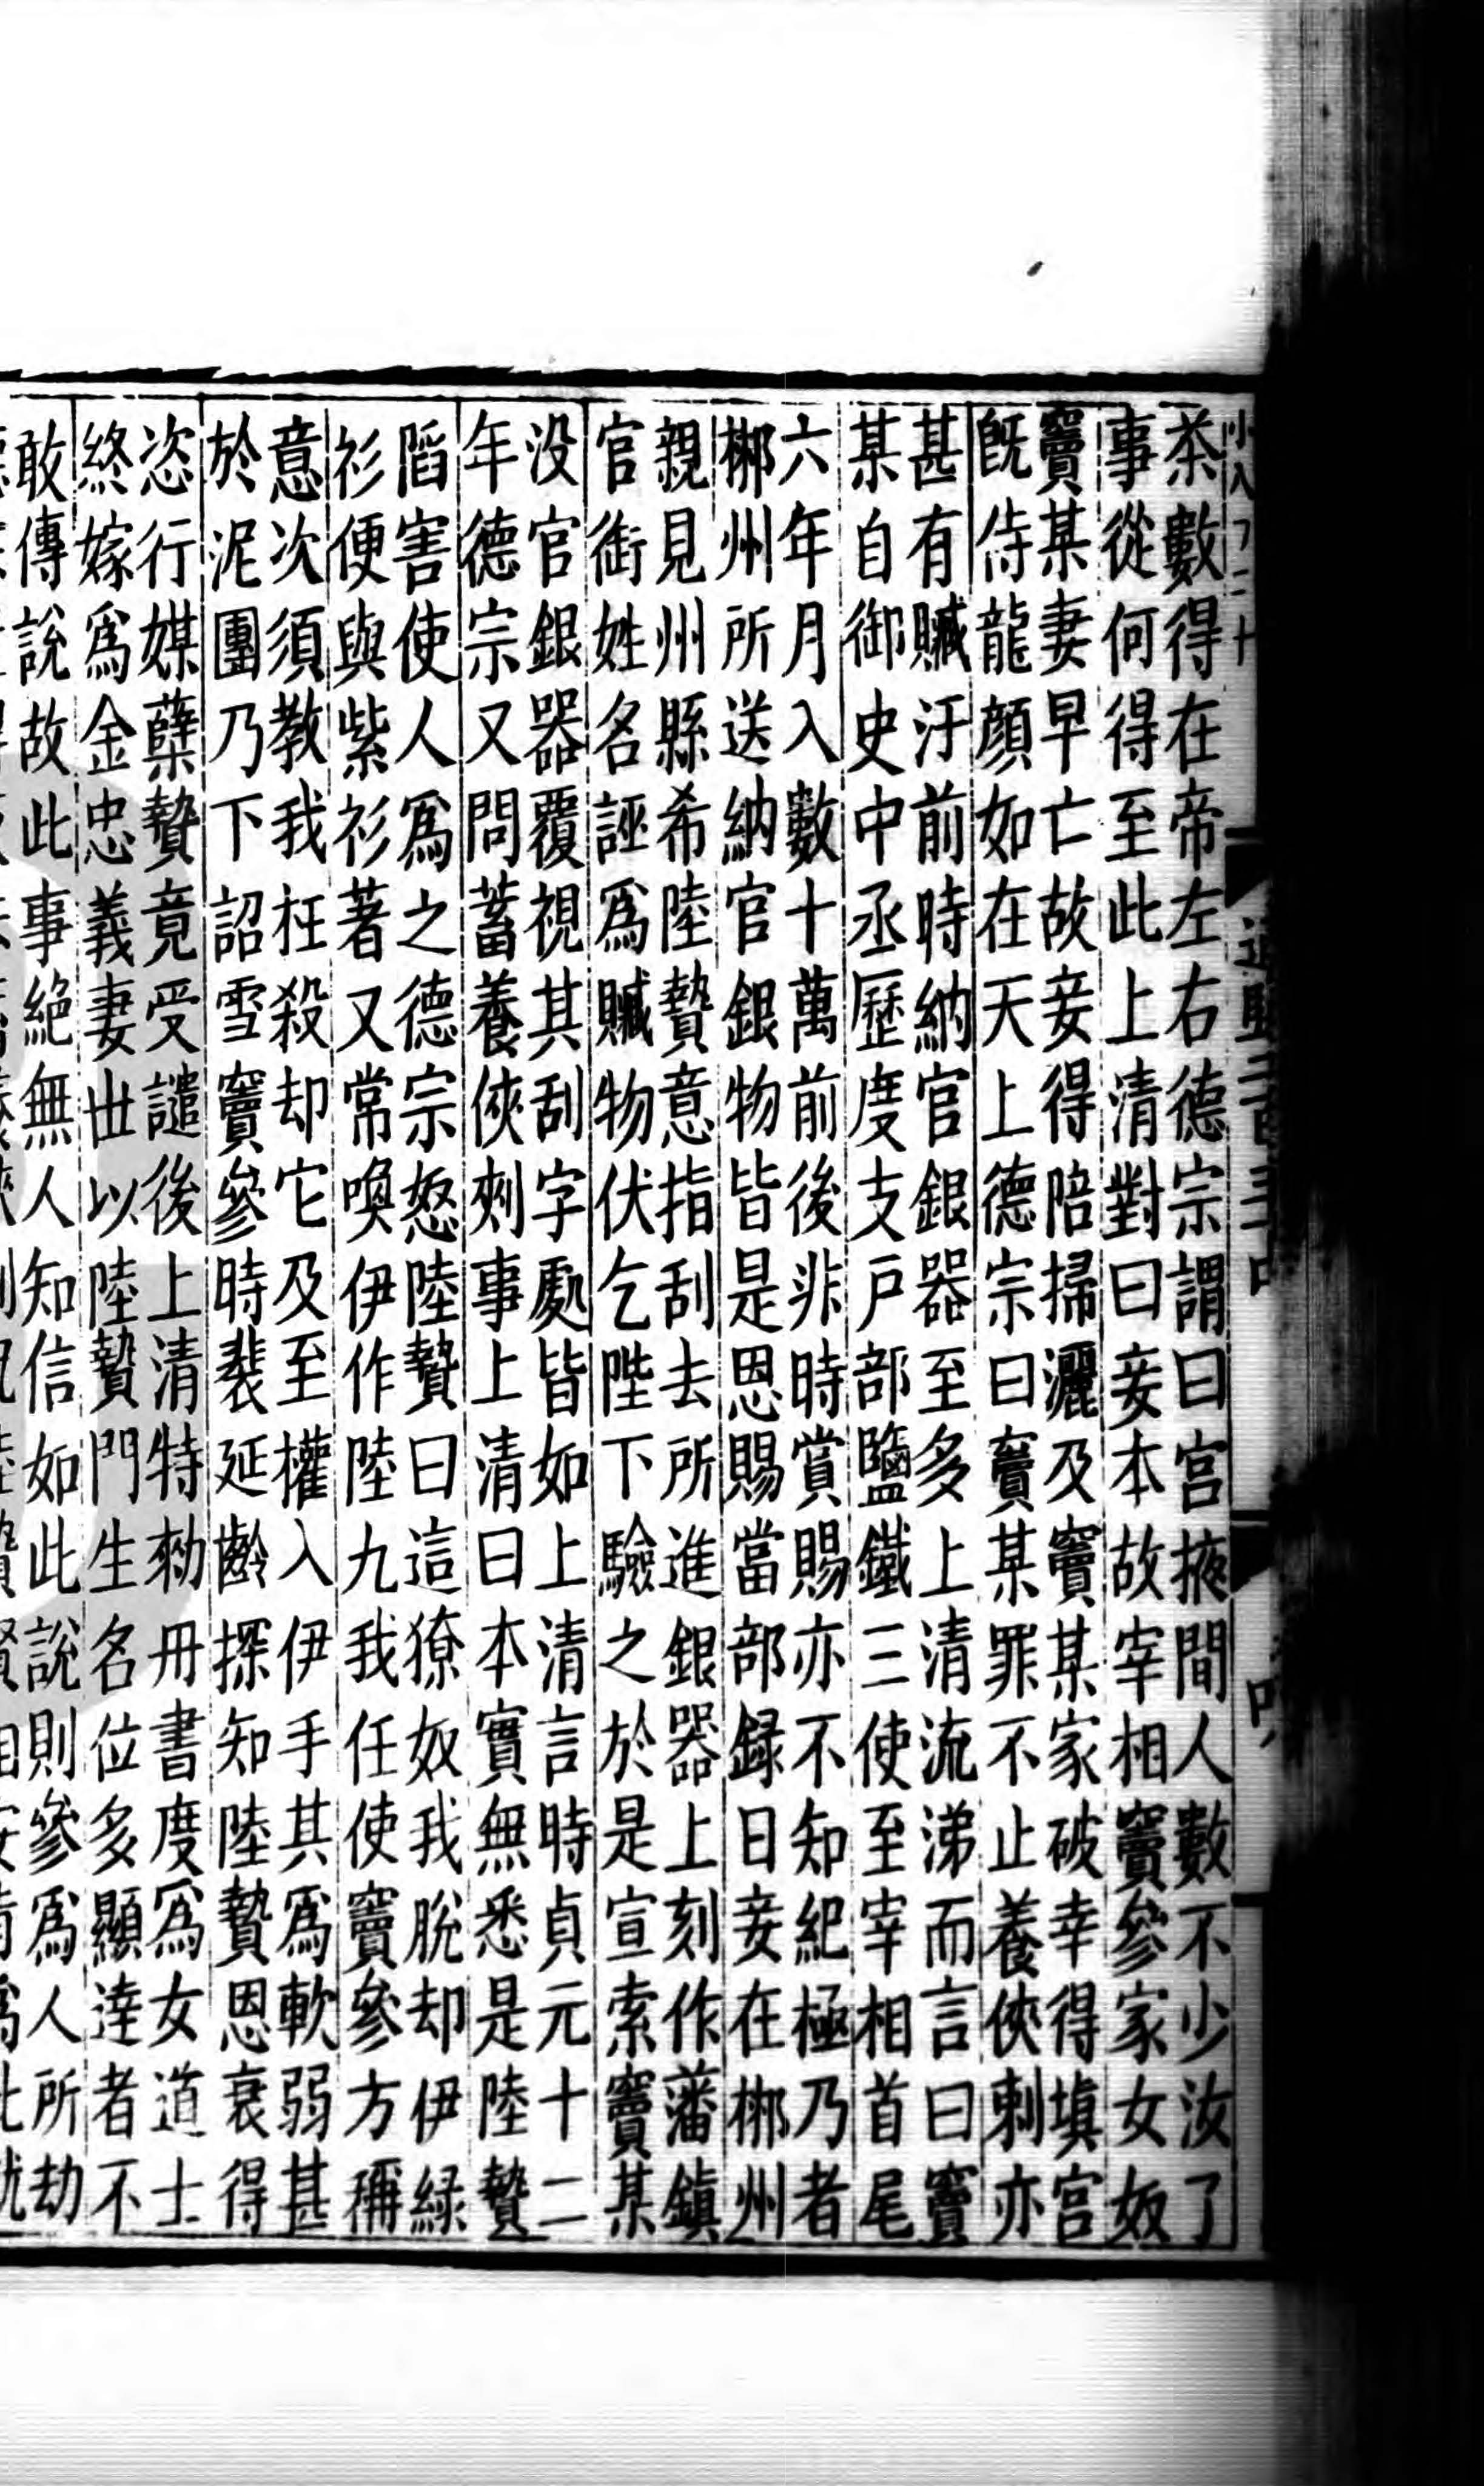 茶數得在帝左右德宗謂曰宫掖間人數不少汝了
事從何得至此上清對曰妾本故宰相竇參家女奴
竇某妻早亡故妾得陪掃灑及竇某家破幸得填宫
既侍龍顔如在天上德宗曰竇某罪不止養俠刺亦
甚有贓汙前時納官銀器至多上清流涕而言曰竇
某自御史中丞歷度支户部鹽鐵三使至宰相首尾
六年月入數十萬前後非時賞賜亦不知紀極乃者
郴州所送納官銀物皆是恩賜當部録日妾在郴州
親見州縣希陸贄意指刮去所進銀器上刻作藩鎮
官銜姓名誣爲贓物伏乞陛下驗之於是宣索竇某
没官銀器覆視其刮字處皆如上清言時貞元十二
年德宗又問蓄養俠刺事上清曰本實無悉是陸贄
䧟害使人爲之德宗怒陸贄曰這獠奴我脫却伊緑
衫便與紫衫著又常喚伊作陸九我任使竇參方稱
意次須教我枉殺却它及至權入伊手其爲軟弱甚
於泥團乃下詔雪竇參時裴延齡探知陸贄恩衰得
恣行媒孽贄竟受譴後上清特勑丹書度爲女道士
終嫁爲金忠義妻世以陸贄門生名位多顯達者不
敢傳說故此事絶無人知信如此說則參爲人所劫